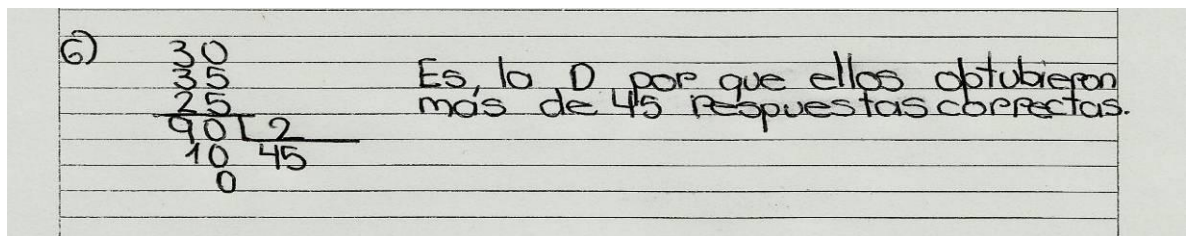 6)
30
35
25
90 2
10 45
0
Es, la D por que ellos obtubieron
más de 45 respuestas correctas.